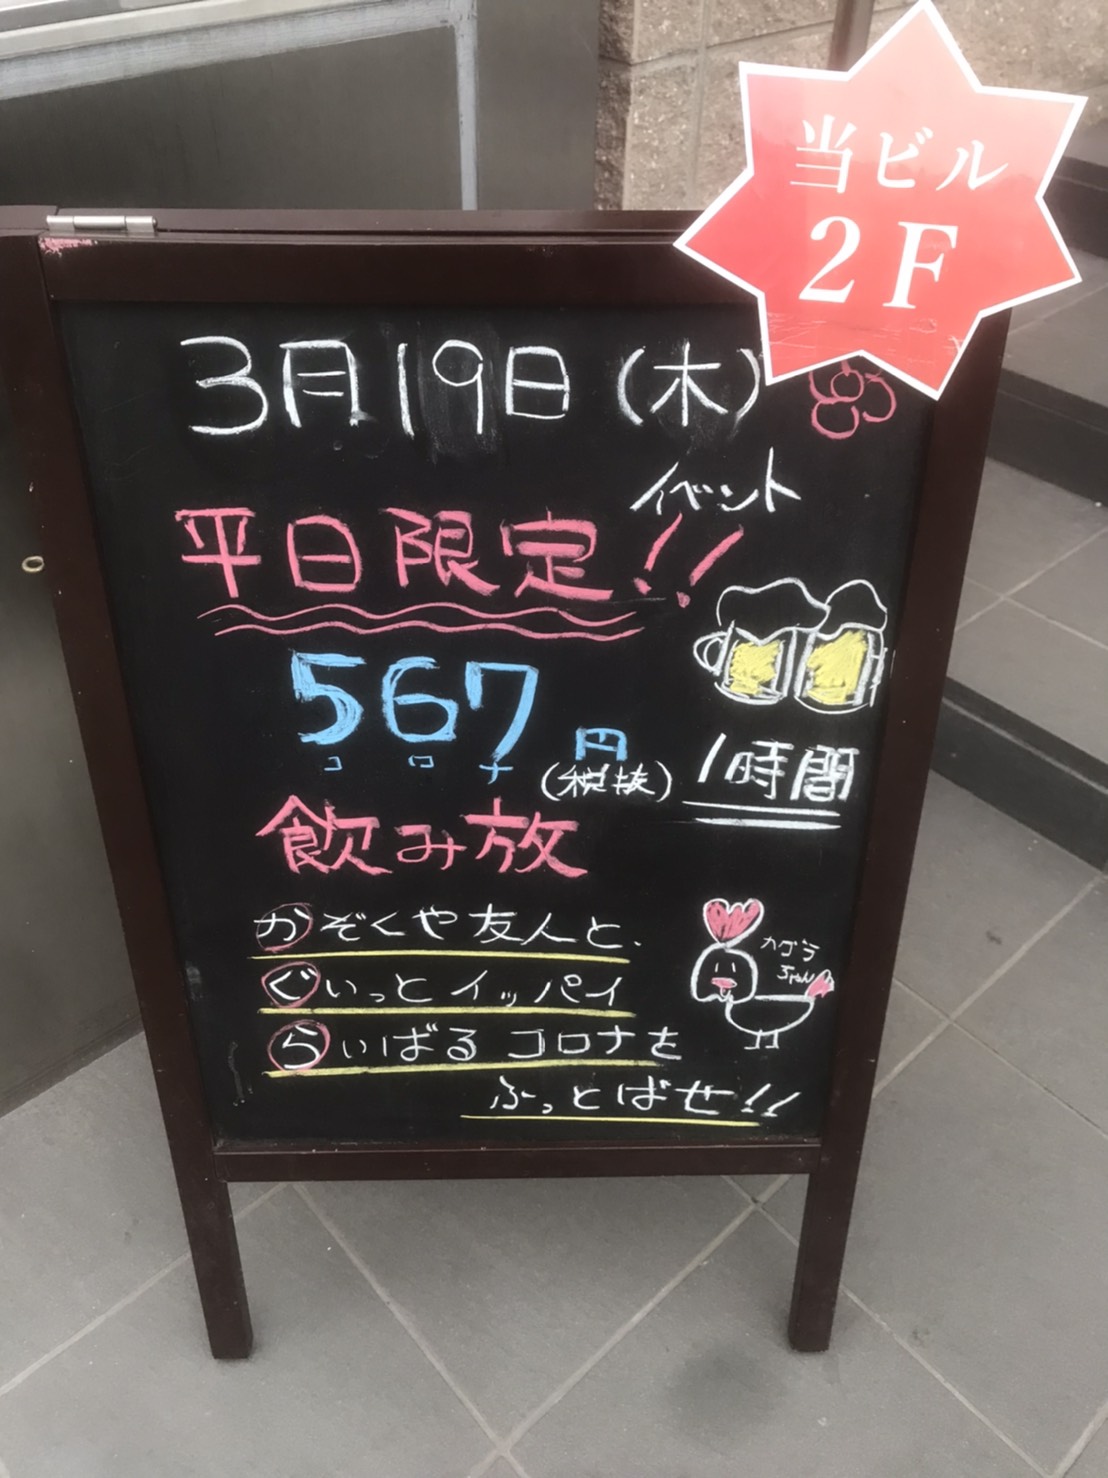 当ビル
2F
3月19日(木)
イベント
平日限定!!
567円
コロナ
(税抜)
1時間
飲み放
かぞくや友人と、
ぐいっとイッパイ
らいばるコロナを
ふっとばせ!!
カグラ
ちゃん